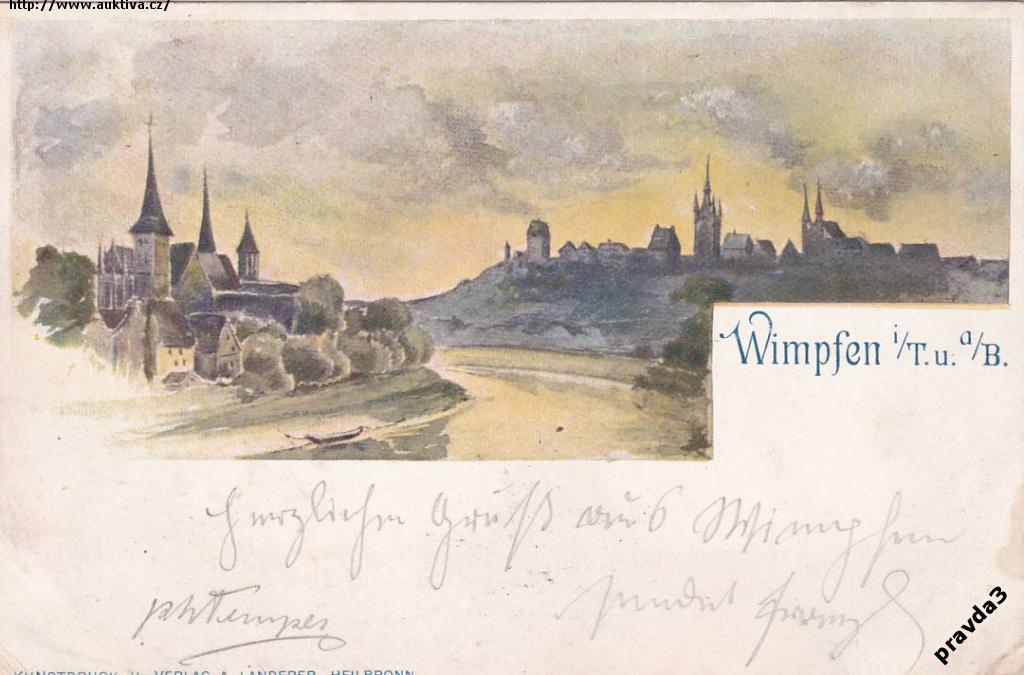 http://www.auktiva.cz/
Wimpfen i/T. u. a/B.
Herzlichen Gruß aus Wimpfen
sendet Franz
KUNSTDRUCK u. VERLAG A. LANDERER, HEILBRONN
pravda3